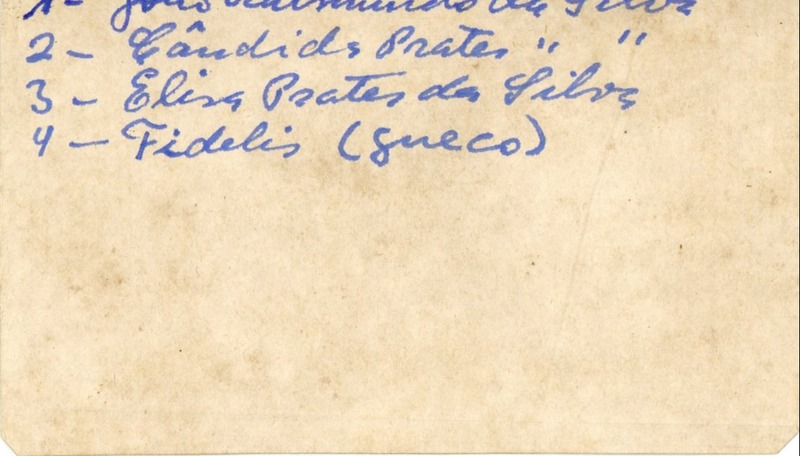 1 - João Raimundo da Silva
2 - Cândida Prates " "
3 - Elisa Prates da Silva
4 - Fidelis (gueco)